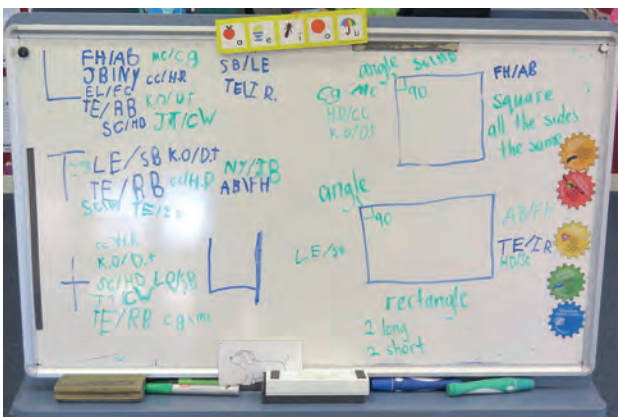 a e i o u
FH/AB mc/cg
JB/NY cc/HR
EL/FC
TE/RB K.O/DT
SC/HD JT/CW
SB/LE
TE/IR.
LE/SB K.O/D.t NY/JB
TE/RB cc/H.D AB\FH
TE/
cc/H.R
K.O/D.t
SC/HD LE/SB
JT/CW
TE/RB cg mc
angle SC/HD
cg mc
HD/CC
K.O/D.t
90
FH/AB
square
all the sides
the same
angle
90
LE/SB
AB/FH
TE/IR
HD/SC
rectangle
2 long
2 short